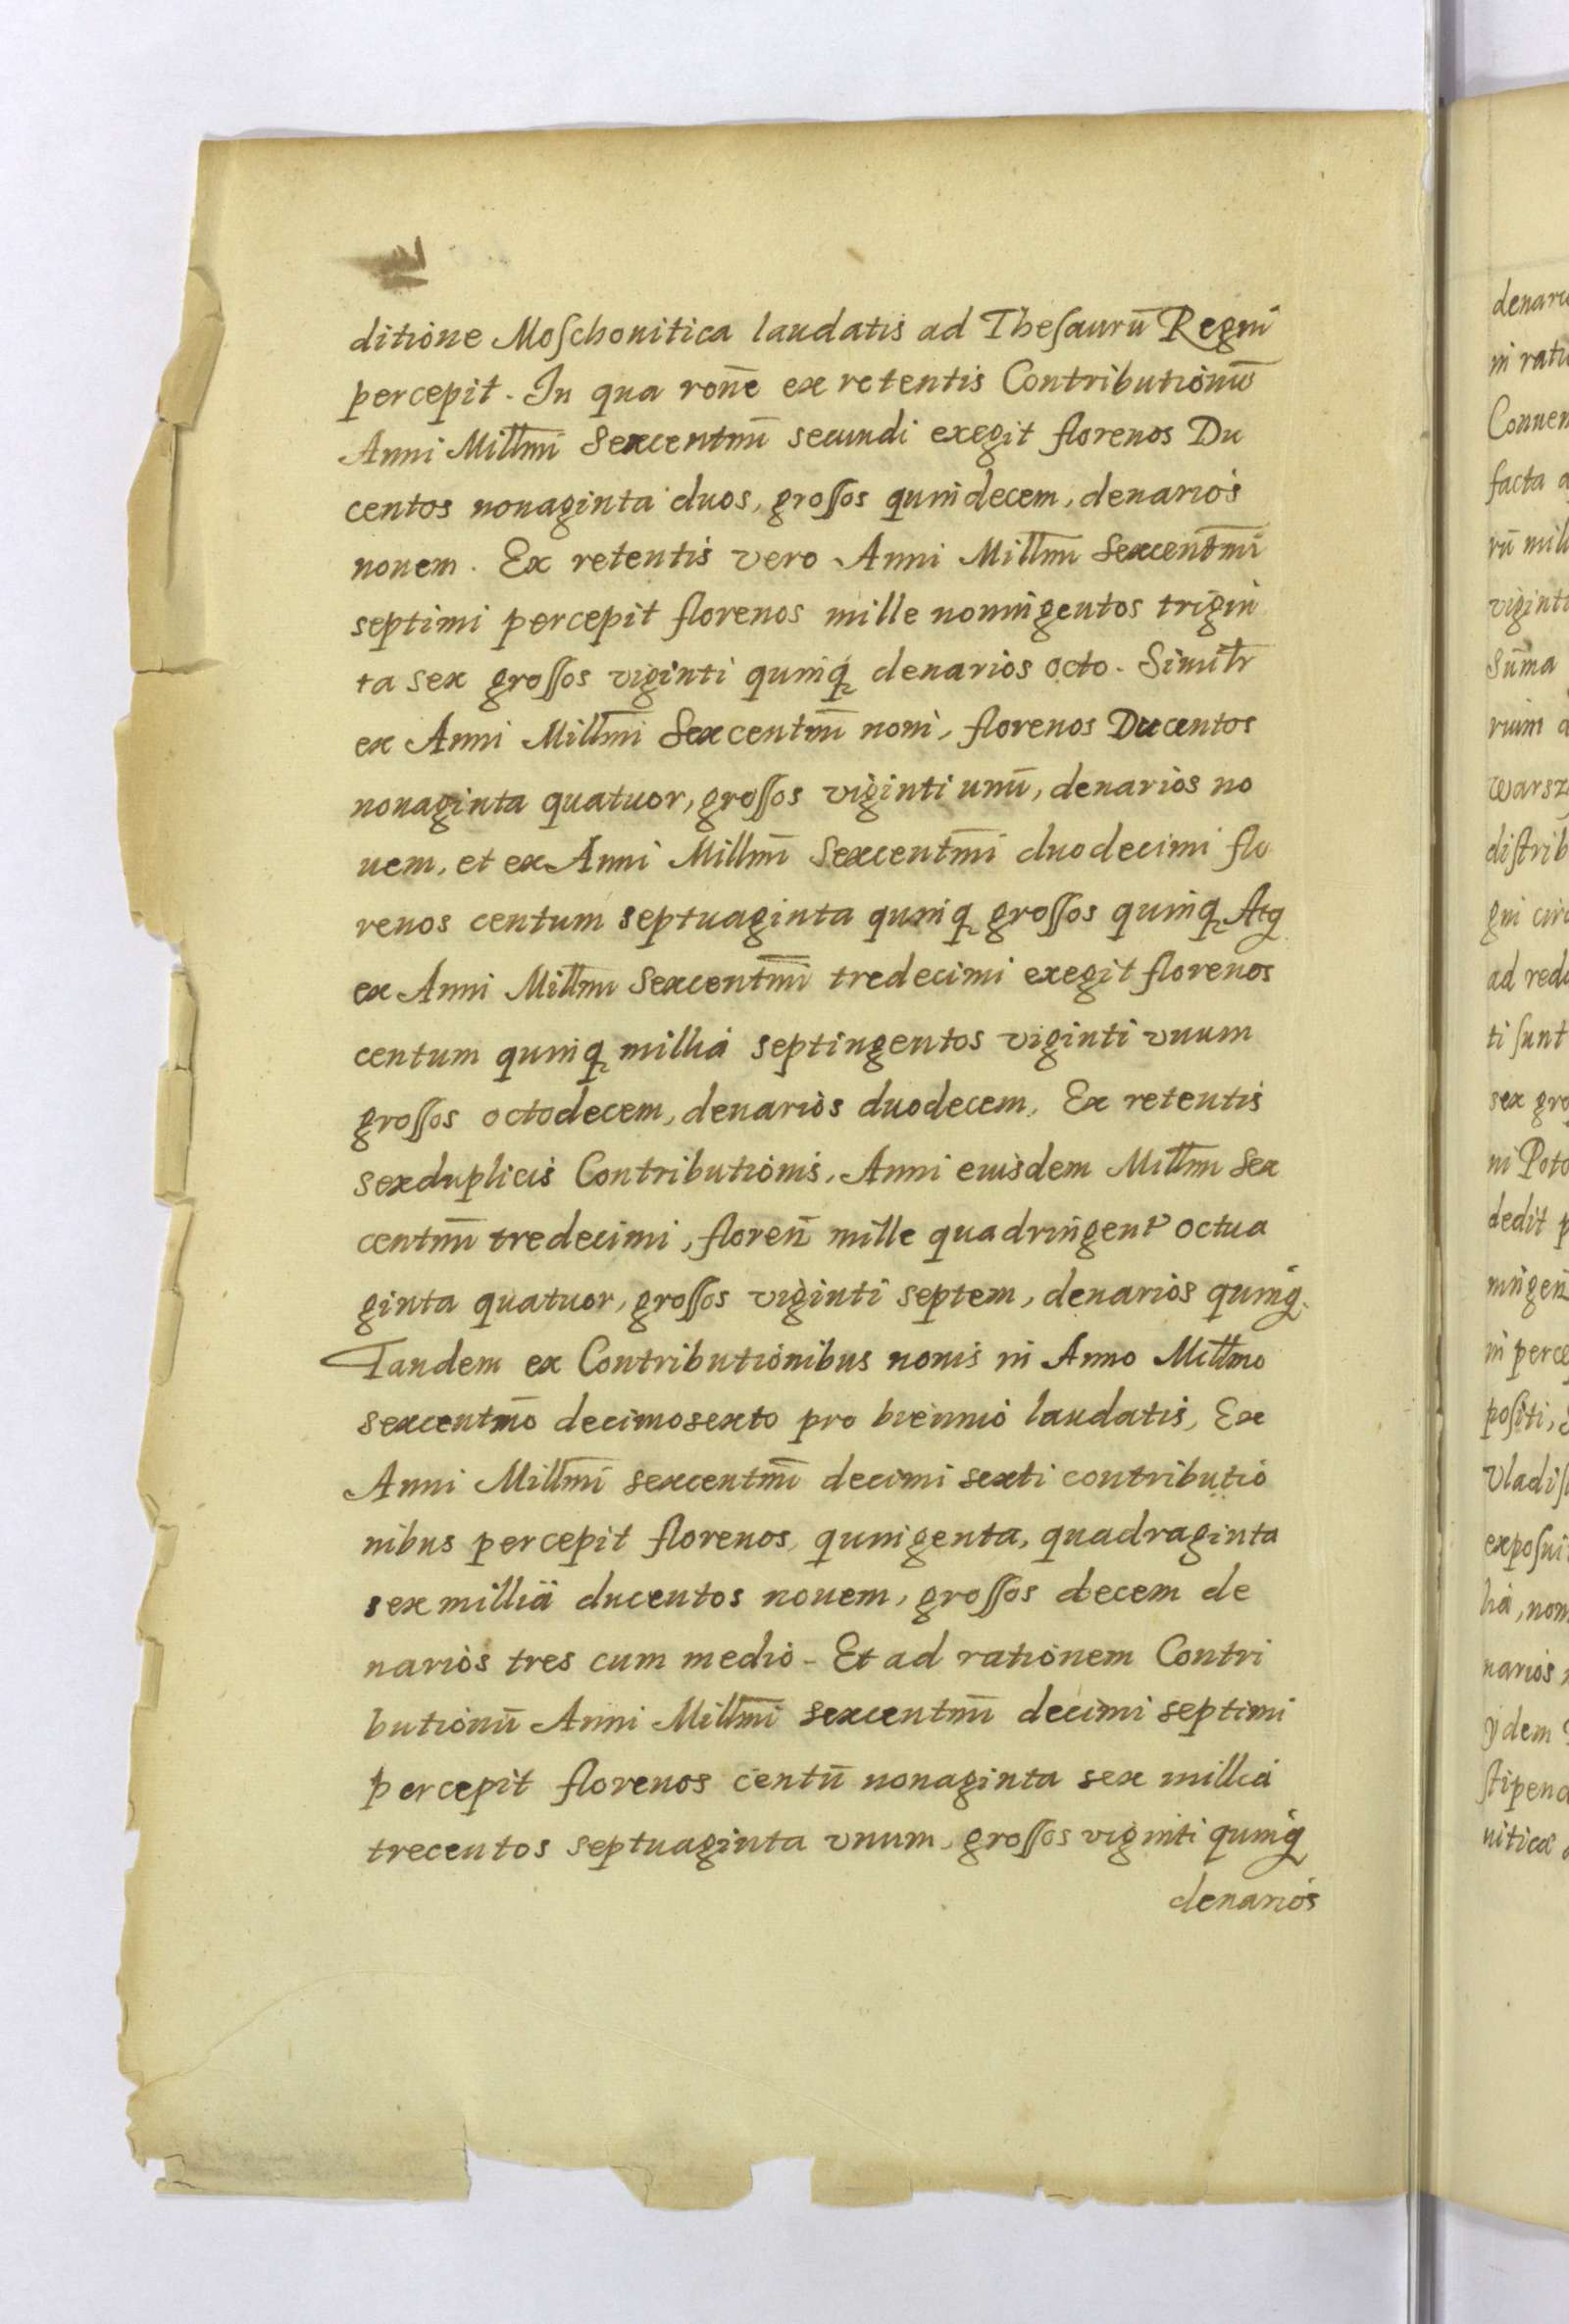 ditione Moschouitica laudatis ad Thesaurū Regni
percepit. In qua rone̅ ex retentis Contributionū
Anni Millmi Sexcentmi secundi exegit florenos Du
centos nonaginta duos, grossos quindecem, denarios
nouem. Ex retentis vero Anni Millmi Sexcentmi
septimi percepit florenos mille nonningentos trigin
ta sex grossos viginti quinq denarios octo. Similr
ex Anni Millmi Sexcentmi noni, florenos Ducentos
nonaginta quatuor, grossos viginti unū, denarios no
uem, et ex Anni Millmi Sexcentmi duodecimi flo
renos centum septuaginta quinq grossos quinq Atq
ex Anni Millmi Sexcentmi tredecimi exegit florenos
centum quinq millia septingentos viginti vnum
grossos octodecem, denarios duodecem, Ex retentis
sexduplicis Contributionis, Anni eiusdem Millmi Sex
centmi tredecimi, floren̄ mille quadringent octua
ginta quatuor, grossos viginti septem, denarios quinq.
Tandem ex Contributionibus nouis in Anno Millmo
sexcentmo decimosexto pro biennio laudatis, Ex
Anni Millmi sexcentmi decimi sexti contributio
nibus percepit florenos, quingenta, quadraginta
sex millia ducentos nouem, grossos decem de
narios tres cum medio - Et ad rationem Contri
butionū Anni Millmi sexcentmi decimi septimi
percepit florenos centū nonaginta sex millia
trecentos septuaginta vnum, grossos viginti quinq
denarios
denari
in rati
Conuen
facta a
rū mil
viginti
Sūma
ruim
Warsz
distrib
gni circ
ad red
ti sunt
sex gro
ni Poto
dedit p
ningen
in perce
positi,
Vladis
exposui
lia, non
narios
ijdem
stipend
uiticæ